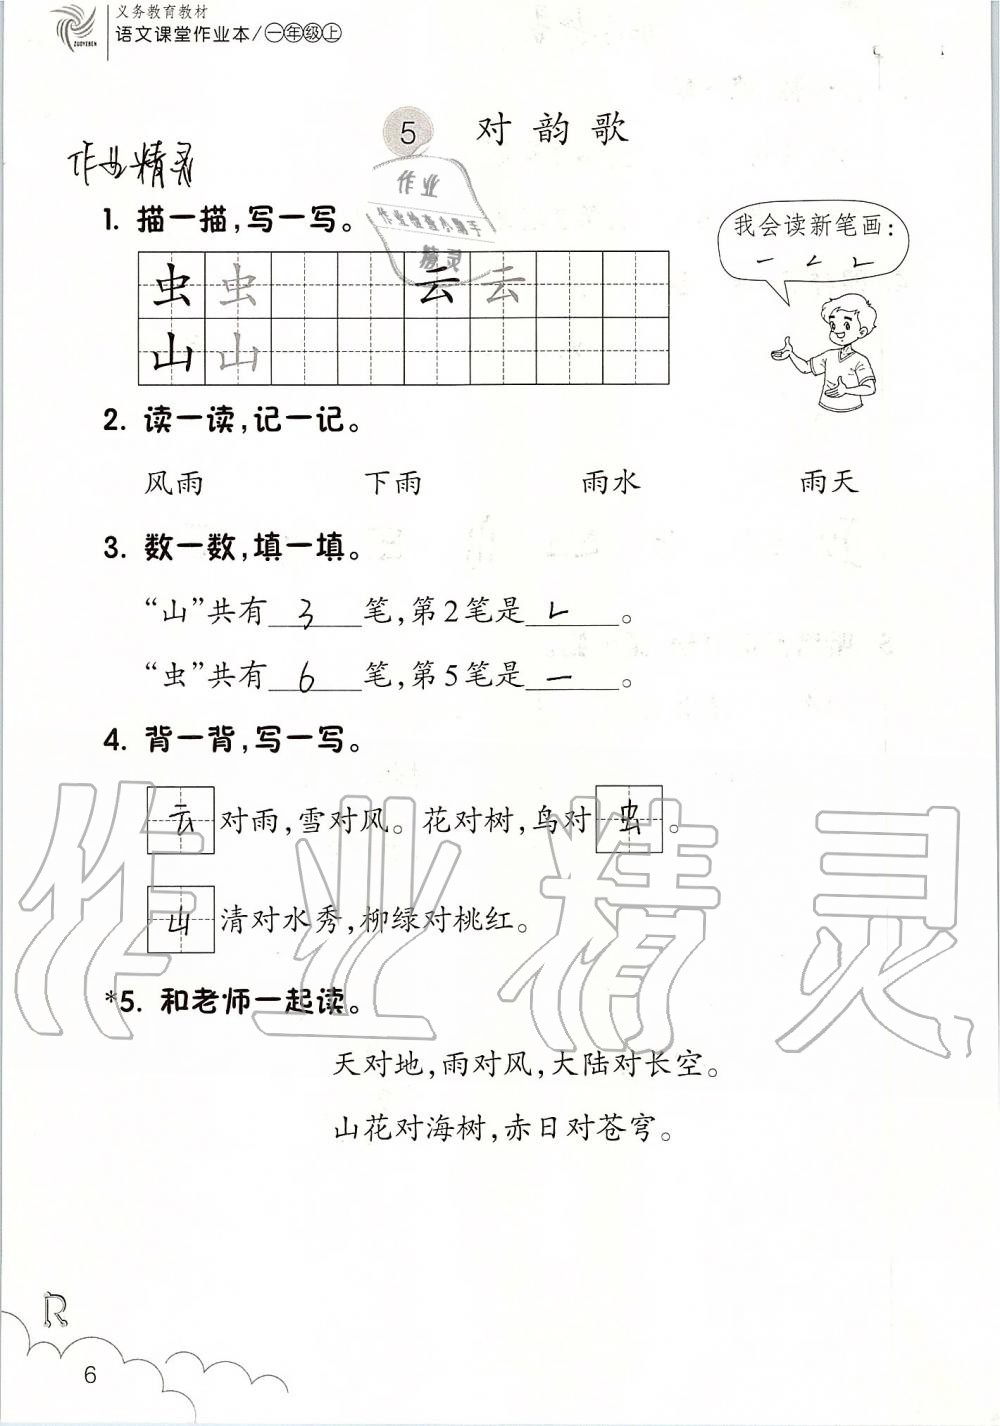 义务教育教材
语文课堂作业本/一年级上
ZUOYEBEN
5 对韵歌
作业精灵
作业
作业检查小帮手
精灵
1. 描一描,写一写。
我会读新笔画:
虫 虫 云 云
山 山
2. 读一读,记一记。
风雨 下雨 雨水 雨天
3. 数一数,填一填。
“山”共有 3 笔,第2笔是 ㄴ 。
“虫”共有 6 笔,第5笔是 一 。
4. 背一背,写一写。
云对雨,雪对风。花对树,鸟对虫。
山清对水秀,柳绿对桃红。
作业精灵
*5. 和老师一起读。
天对地,雨对风,大陆对长空。
山花对海树,赤日对苍穹。
R
6